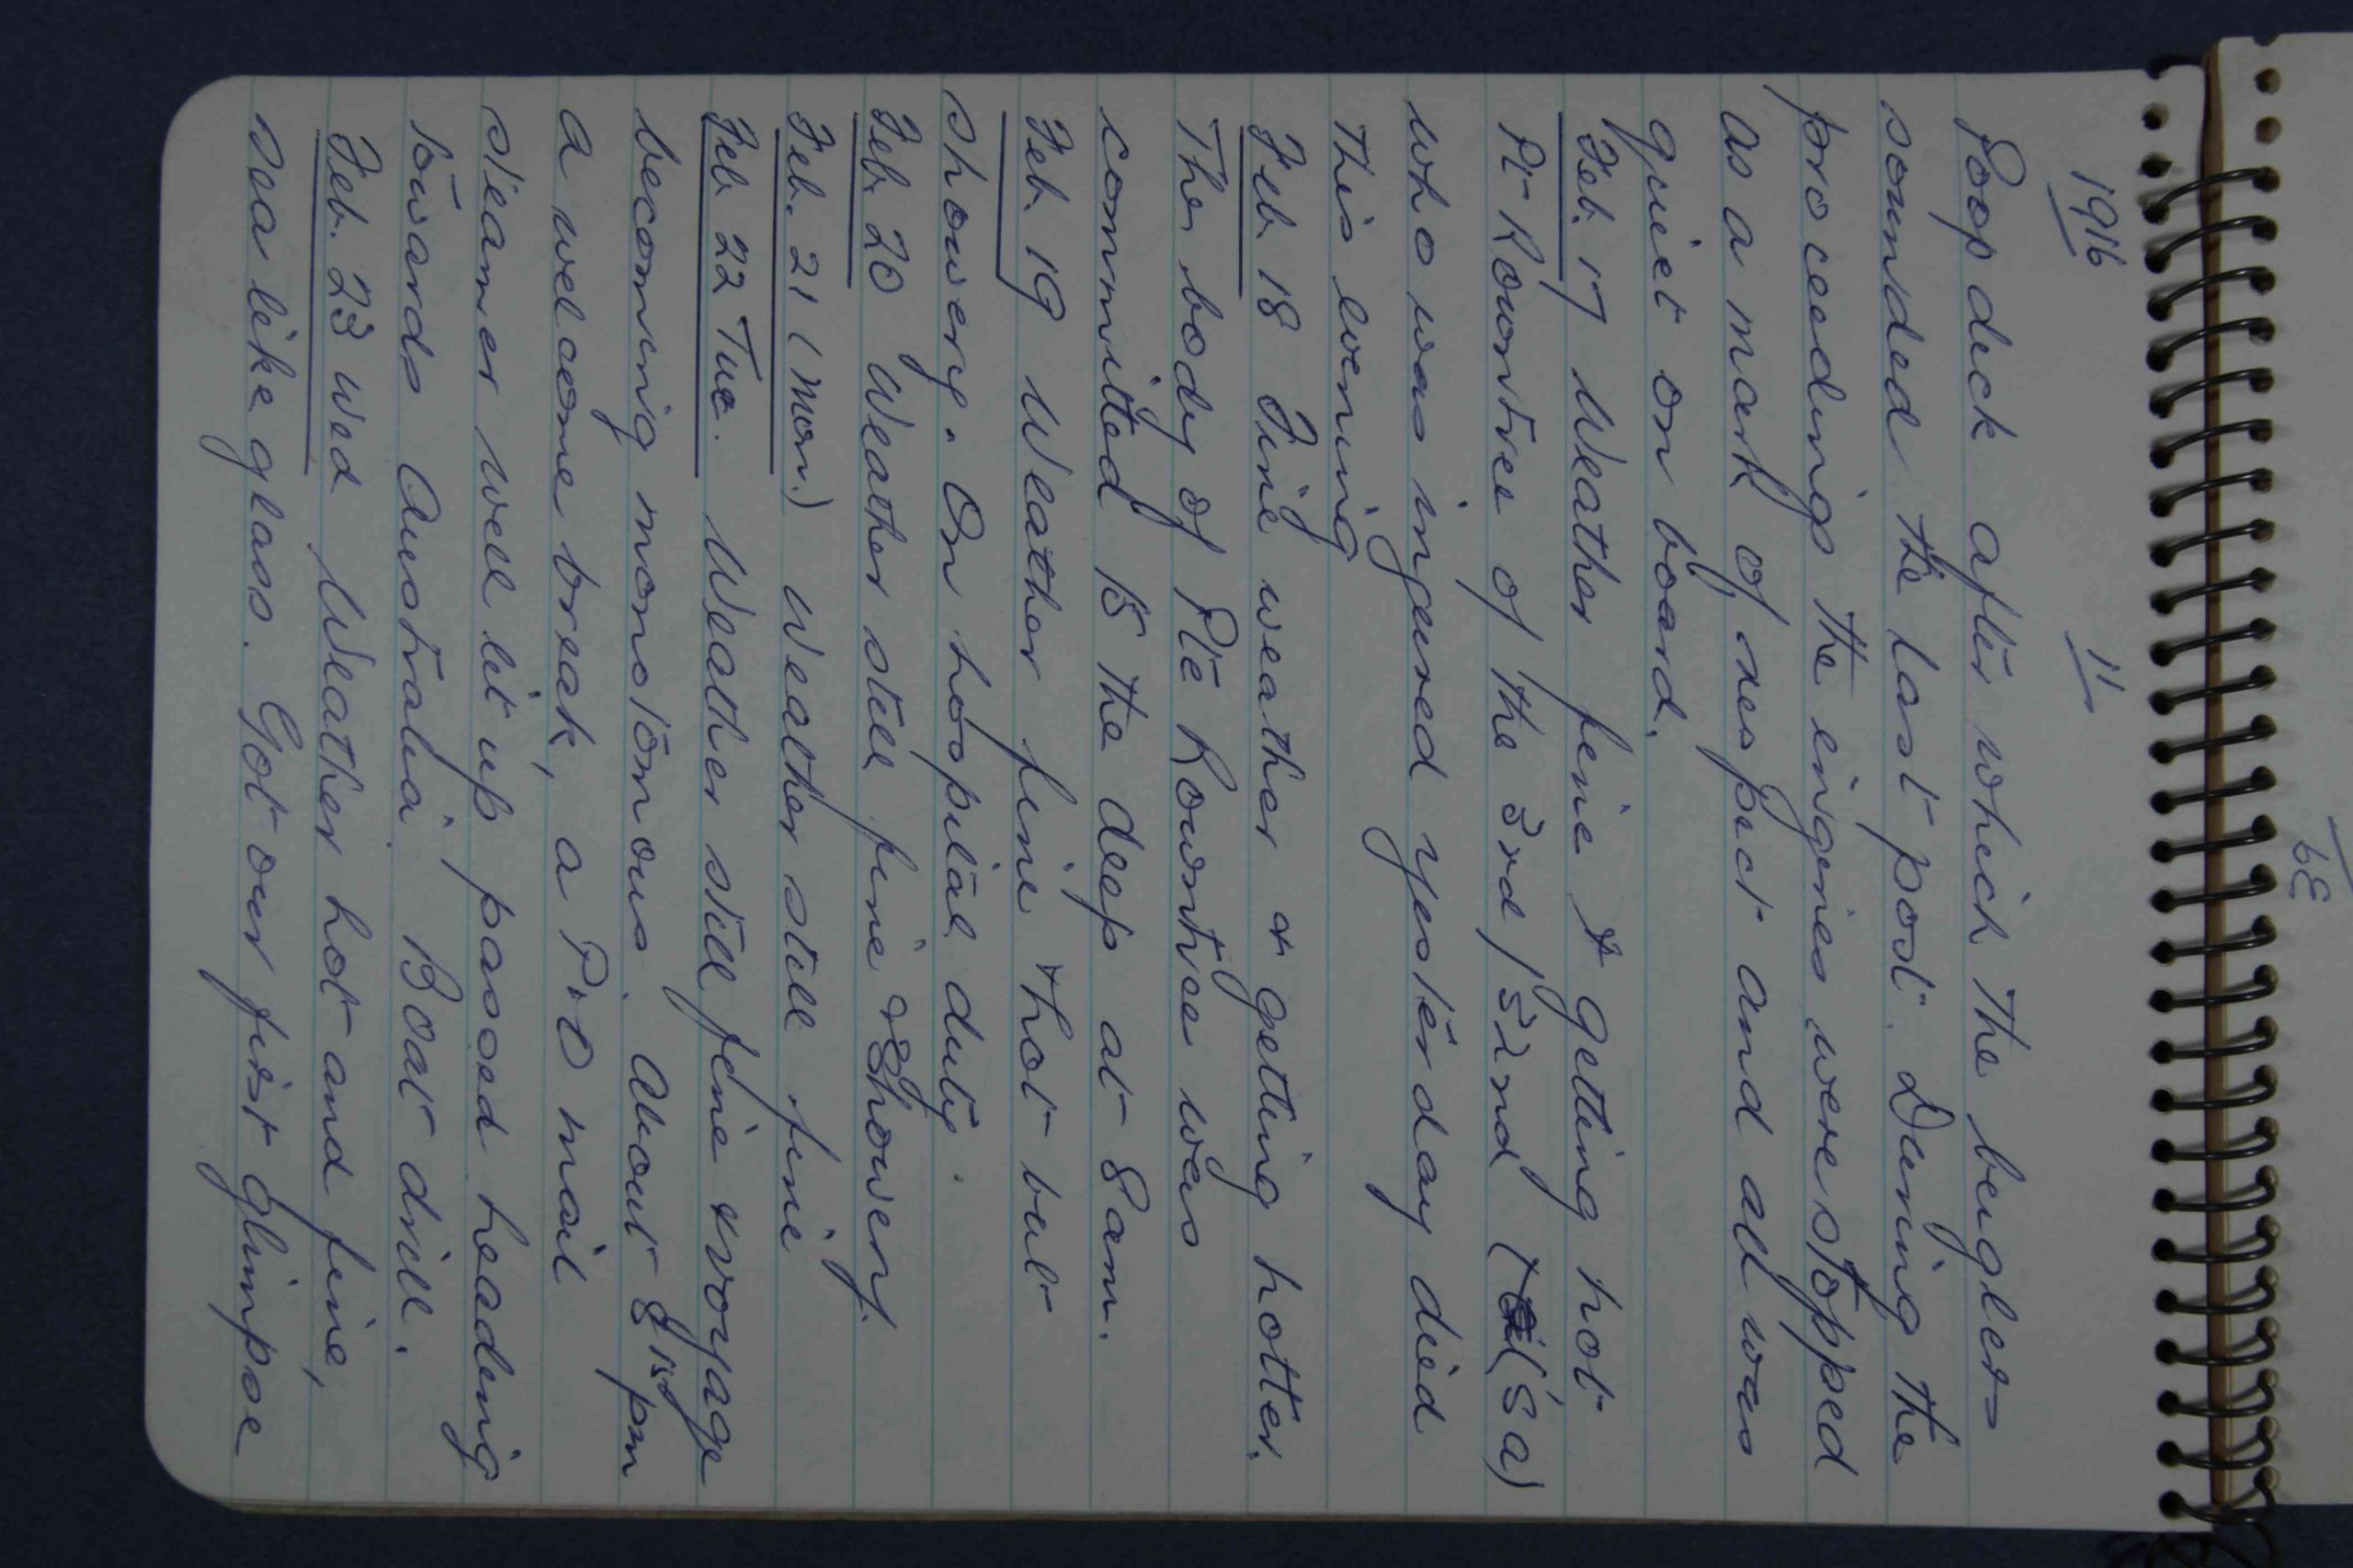 39
1916
11
Poop deck after which the bugler=
sounded the last post. During the
proceedings the engines were stopped
as a mark of respect and all was
quiet on board.
Feb. 17 Weather fine & getting hot
Pt Rowntree of the 3rd/32nd (SA)
who was ingured yesterday died
this evening
Feb. 18 Fine weather & getting hotter.
The body of Pte Rowntree was
committed to the deep at 8 am.
Feb. 19 Weather fine & hot but
showery. On hospital duty.
Feb. 20 Weather still fine & showery.
Feb. 21 (Mon.) Weather still fine
Feb. 22 Tue. Weather still fine & voyage
becoming monotonous. About 8 15 pm
a welcome break, a P&O mail
steamer well lit up passed heading
towards Australia. Boat drill.
Feb. 23 Wed Weather hot and fine,
sea like glass. Got our first glimpse